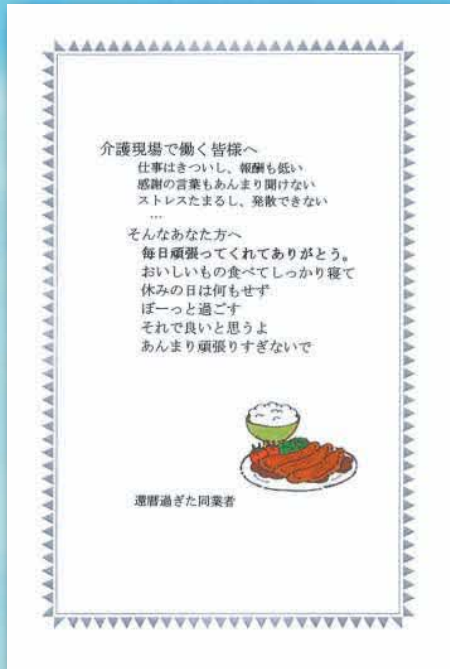 介護現場で働く皆様へ
仕事はきついし、報酬も低い
感謝の言葉もあんまり聞けない
ストレスたまるし、発散できない
…
そんなあなた方へ
毎日頑張ってくれてありがとう。
おいしいもの食べてしっかり寝て
休みの日は何もせず
ぼーっと過ごす
それで良いと思うよ
あんまり頑張りすぎないで
還暦過ぎた同業者